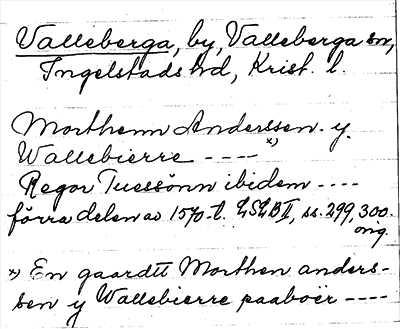 Valleberga, by, Valleberga sn,
Ingelstads hd, Krist. l.
Morthenn Anderssen y
Wallebierre ---- x)
Regor Tuessönn ibidem ----
förra delen av 1570-t. LSLB II, ss. 299, 300.
omg.
x) En gaardtt Morthen anders-
sen y Wallebierre paaboer ----